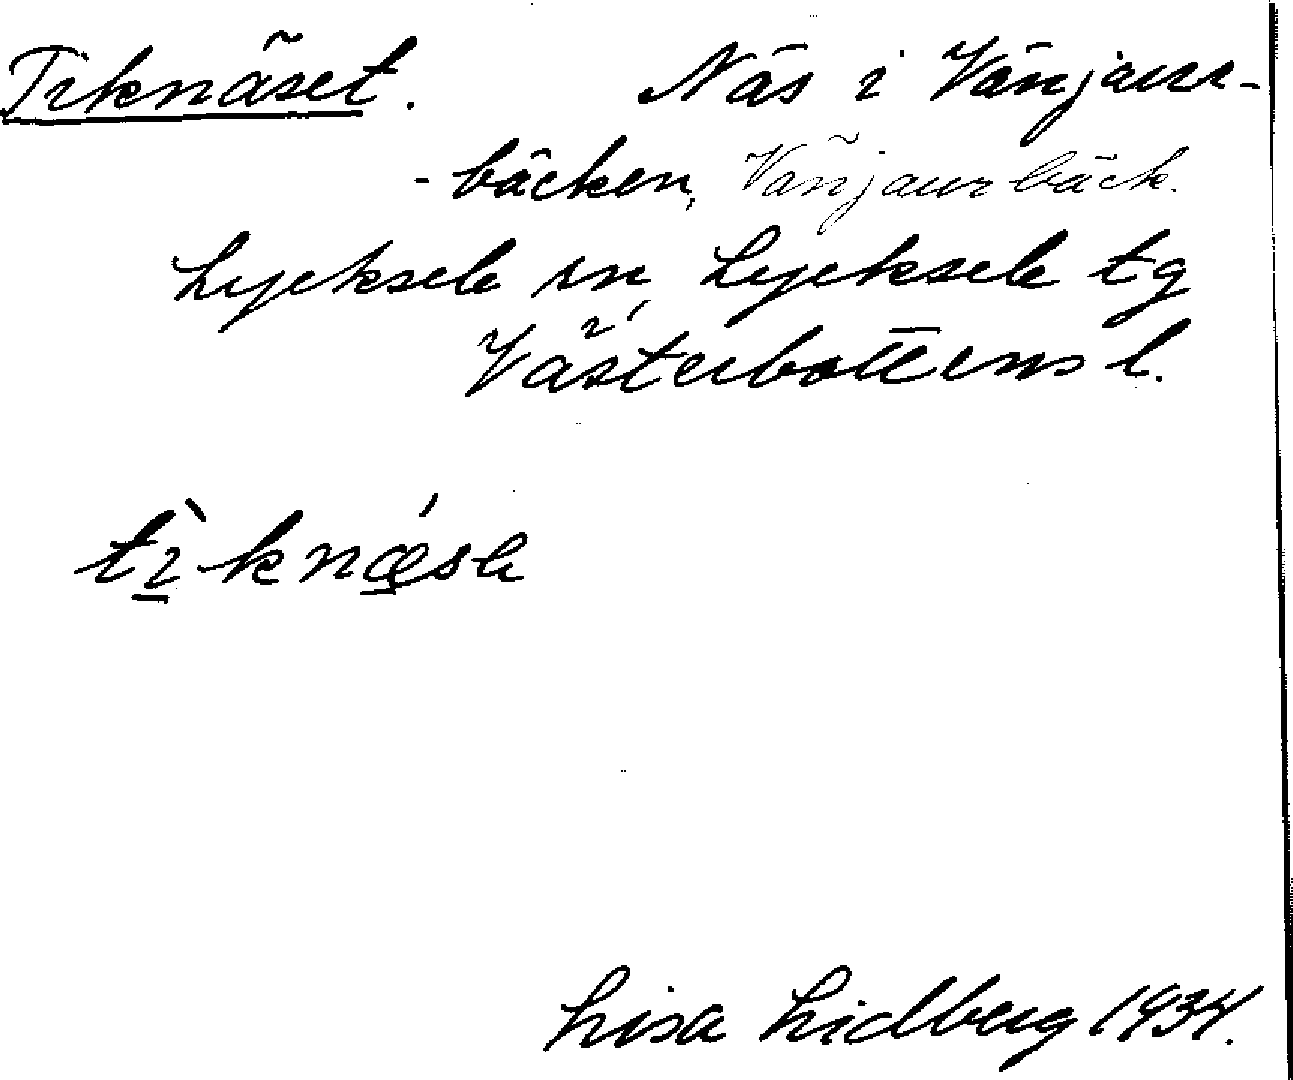 Tiknäset. Näs i Vänjaur-
-bäcken, Vänjaurbäck.
Lycksele sn, Lycksele tg
Västerbottens l.
tìknǽsə
Lisa Lidberg 1934.